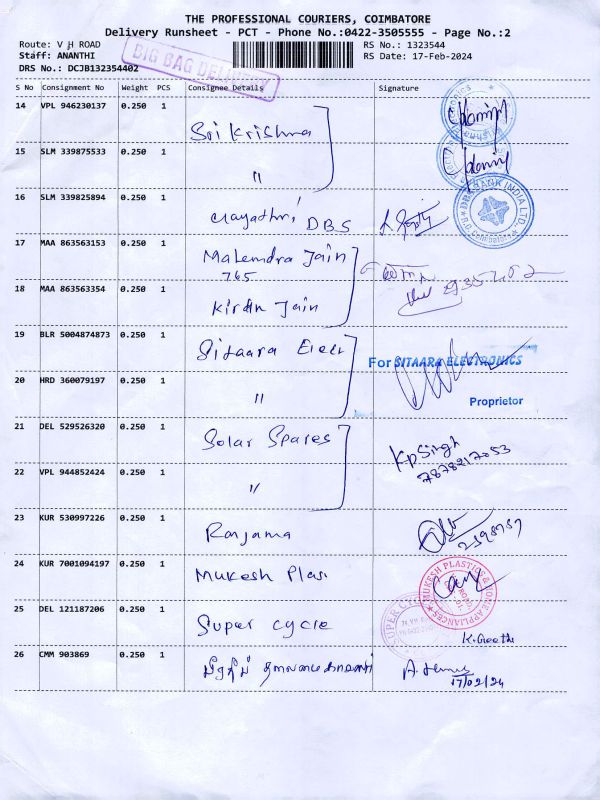 THE PROFESSIONAL COURIERS, COIMBATORE
Delivery Runsheet - PCT - Phone No.:0422-3505555 - Page No.:2
Route: V H ROAD
Staff: ANANTHI
DRS No.: DCJB132354402
BIG BAG DELIVERY
RS No.: 1323544
RS Date: 17-Feb-2024
S No Consignment No Weight PCS Consignee Details Signature
14 VPL 946230137 0.250 1 Sri Krishna
15 SLM 339875533 0.250 1 "
16 SLM 339825894 0.250 1 Gayathri DBS
DBS BANK INDIA LTD.
17 MAA 863563153 0.250 1 Mahendra Jain
765
18 MAA 863563354 0.250 1 Kiran Jain
19 BLR 5004874873 0.250 1 Sitaara Elect
For SITAARA ELECTRONICS
20 HRD 360079197 0.250 1 "
Proprietor
21 DEL 529526320 0.250 1 Solar Spares
KP Singh
7878217053
22 VPL 944852424 0.250 1 "
23 KUR 530997226 0.250 1
24 KUR 7001094197 0.250 1 Mukesh Plas
MUKESH PLASTICS & HOME APPLIANCES
25 DEL 121187206 0.250 1 Super cycle
SUPER CYC
K. Geetha
26 CMM 903869 0.250 1
17/02/24